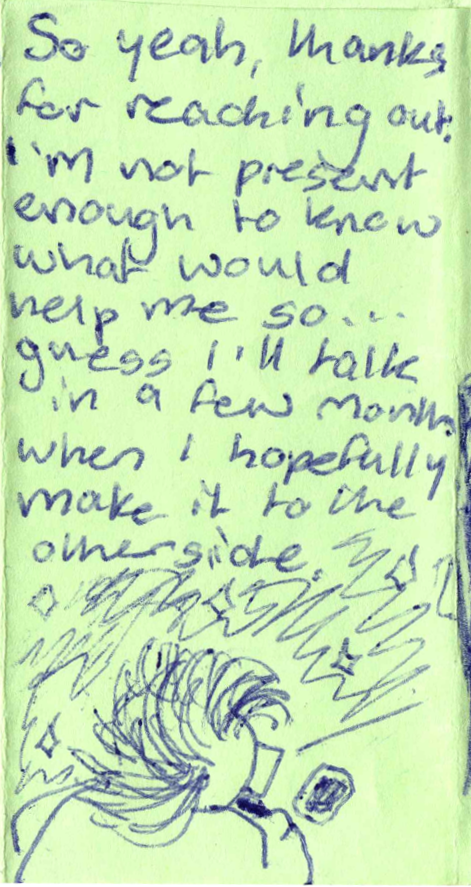 So yeah, thanks
for reaching out.
I'm not present
enough to know
what would
help me so...
guess I'll talk
in a few months
when I hopefully
make it to the
otherside.